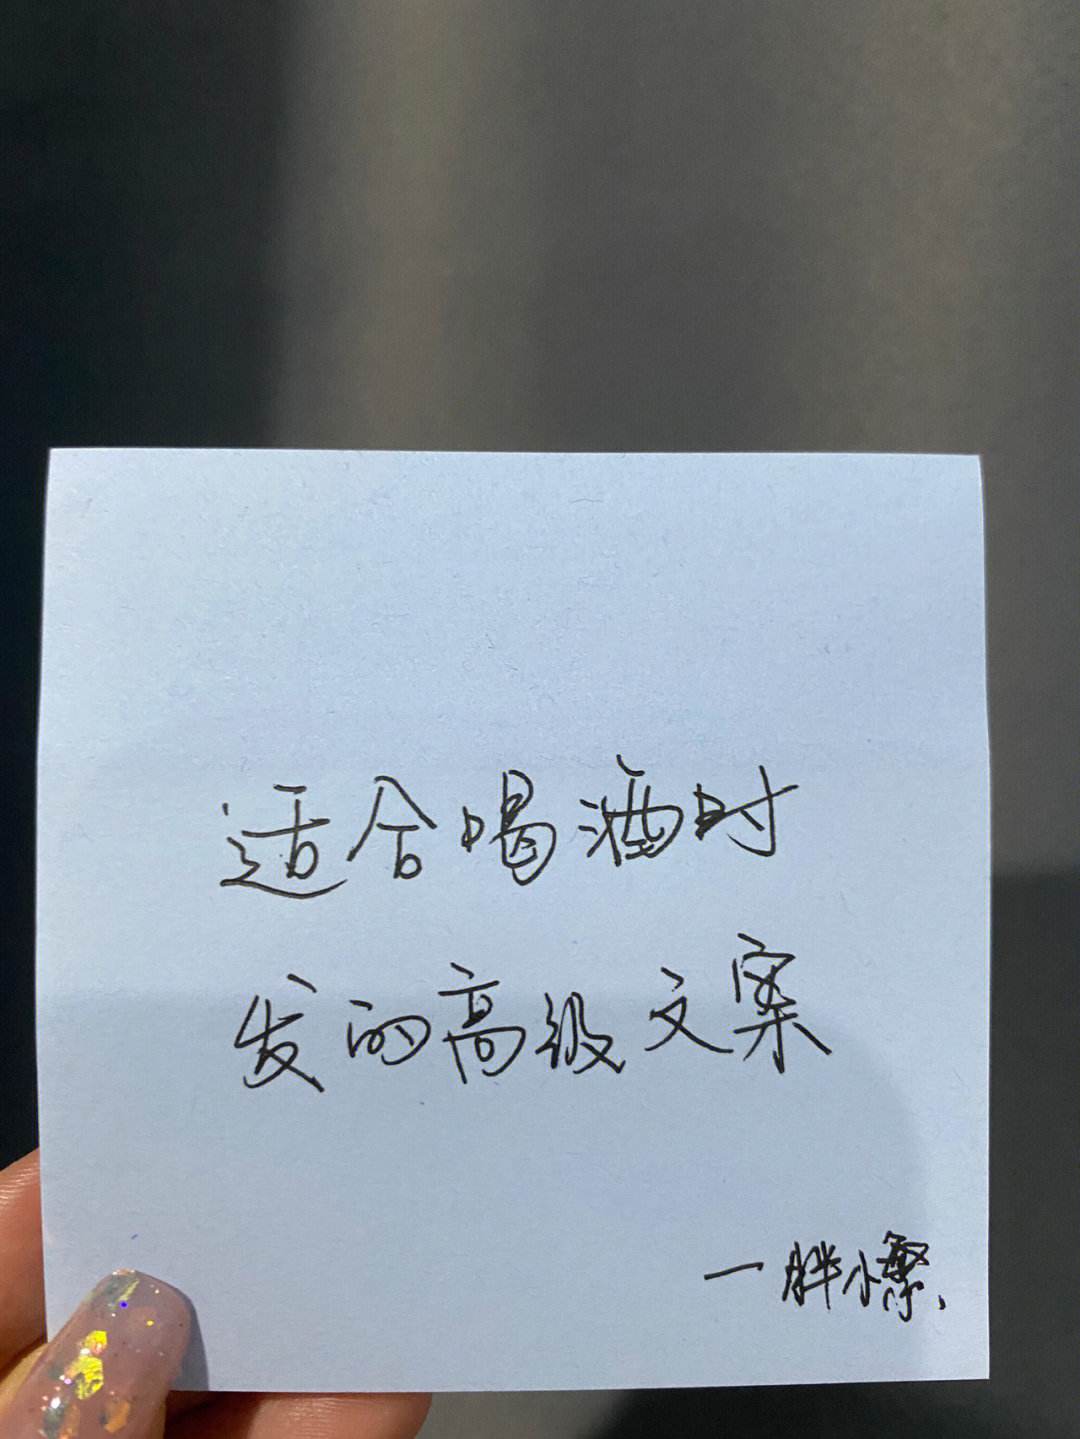 适合喝酒时
发的高级文案
一胖小繁.